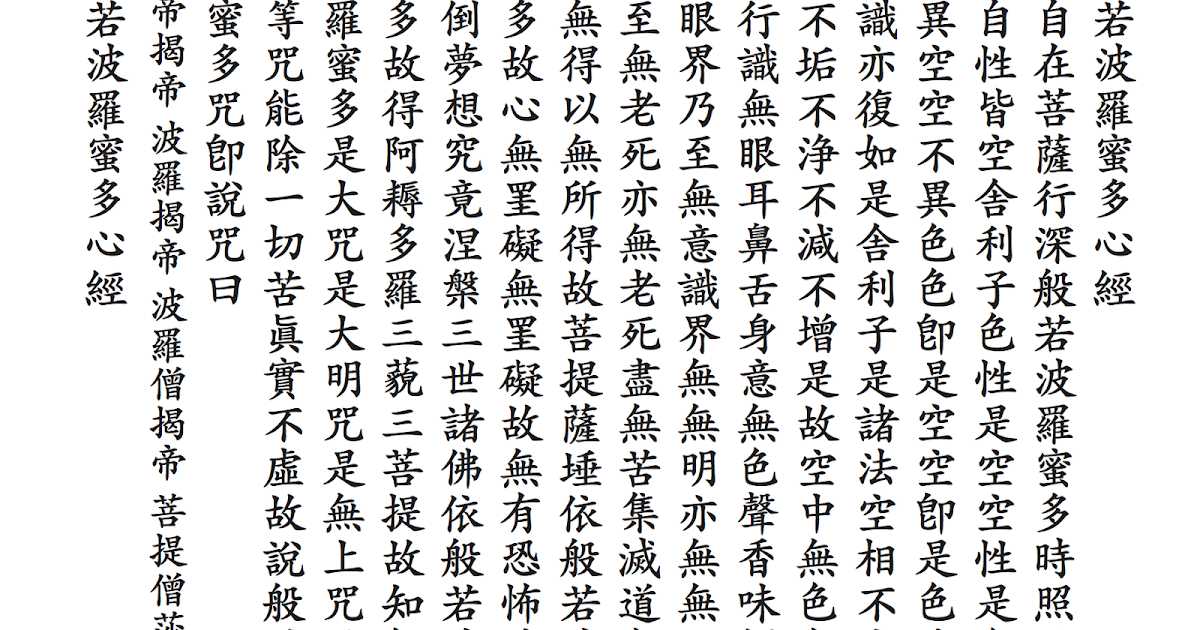 若波羅蜜多心經
自在菩薩行深般若波羅蜜多時照
自性皆空舍利子色性是空空性是
異空空不異色色卽是空空卽是色
識亦復如是舍利子是諸法空相不
不垢不浄不減不增是故空中無色
行識無眼耳鼻舌身意無色聲香味
眼界乃至無意識界無無明亦無無
至無老死亦無老死盡無苦集滅道
無得以無所得故菩提薩埵依般若
多故心無罣礙無罣礙故無有恐怖
倒夢想究竟涅槃三世諸佛依般若
多故得阿耨多羅三藐三菩提故知
羅蜜多是大咒是大明咒是無上咒
等咒能除一切苦眞實不虛故說般
蜜多咒卽說咒曰
帝揭帝 波羅揭帝 波羅僧揭帝 菩提僧莎
若波羅蜜多心經